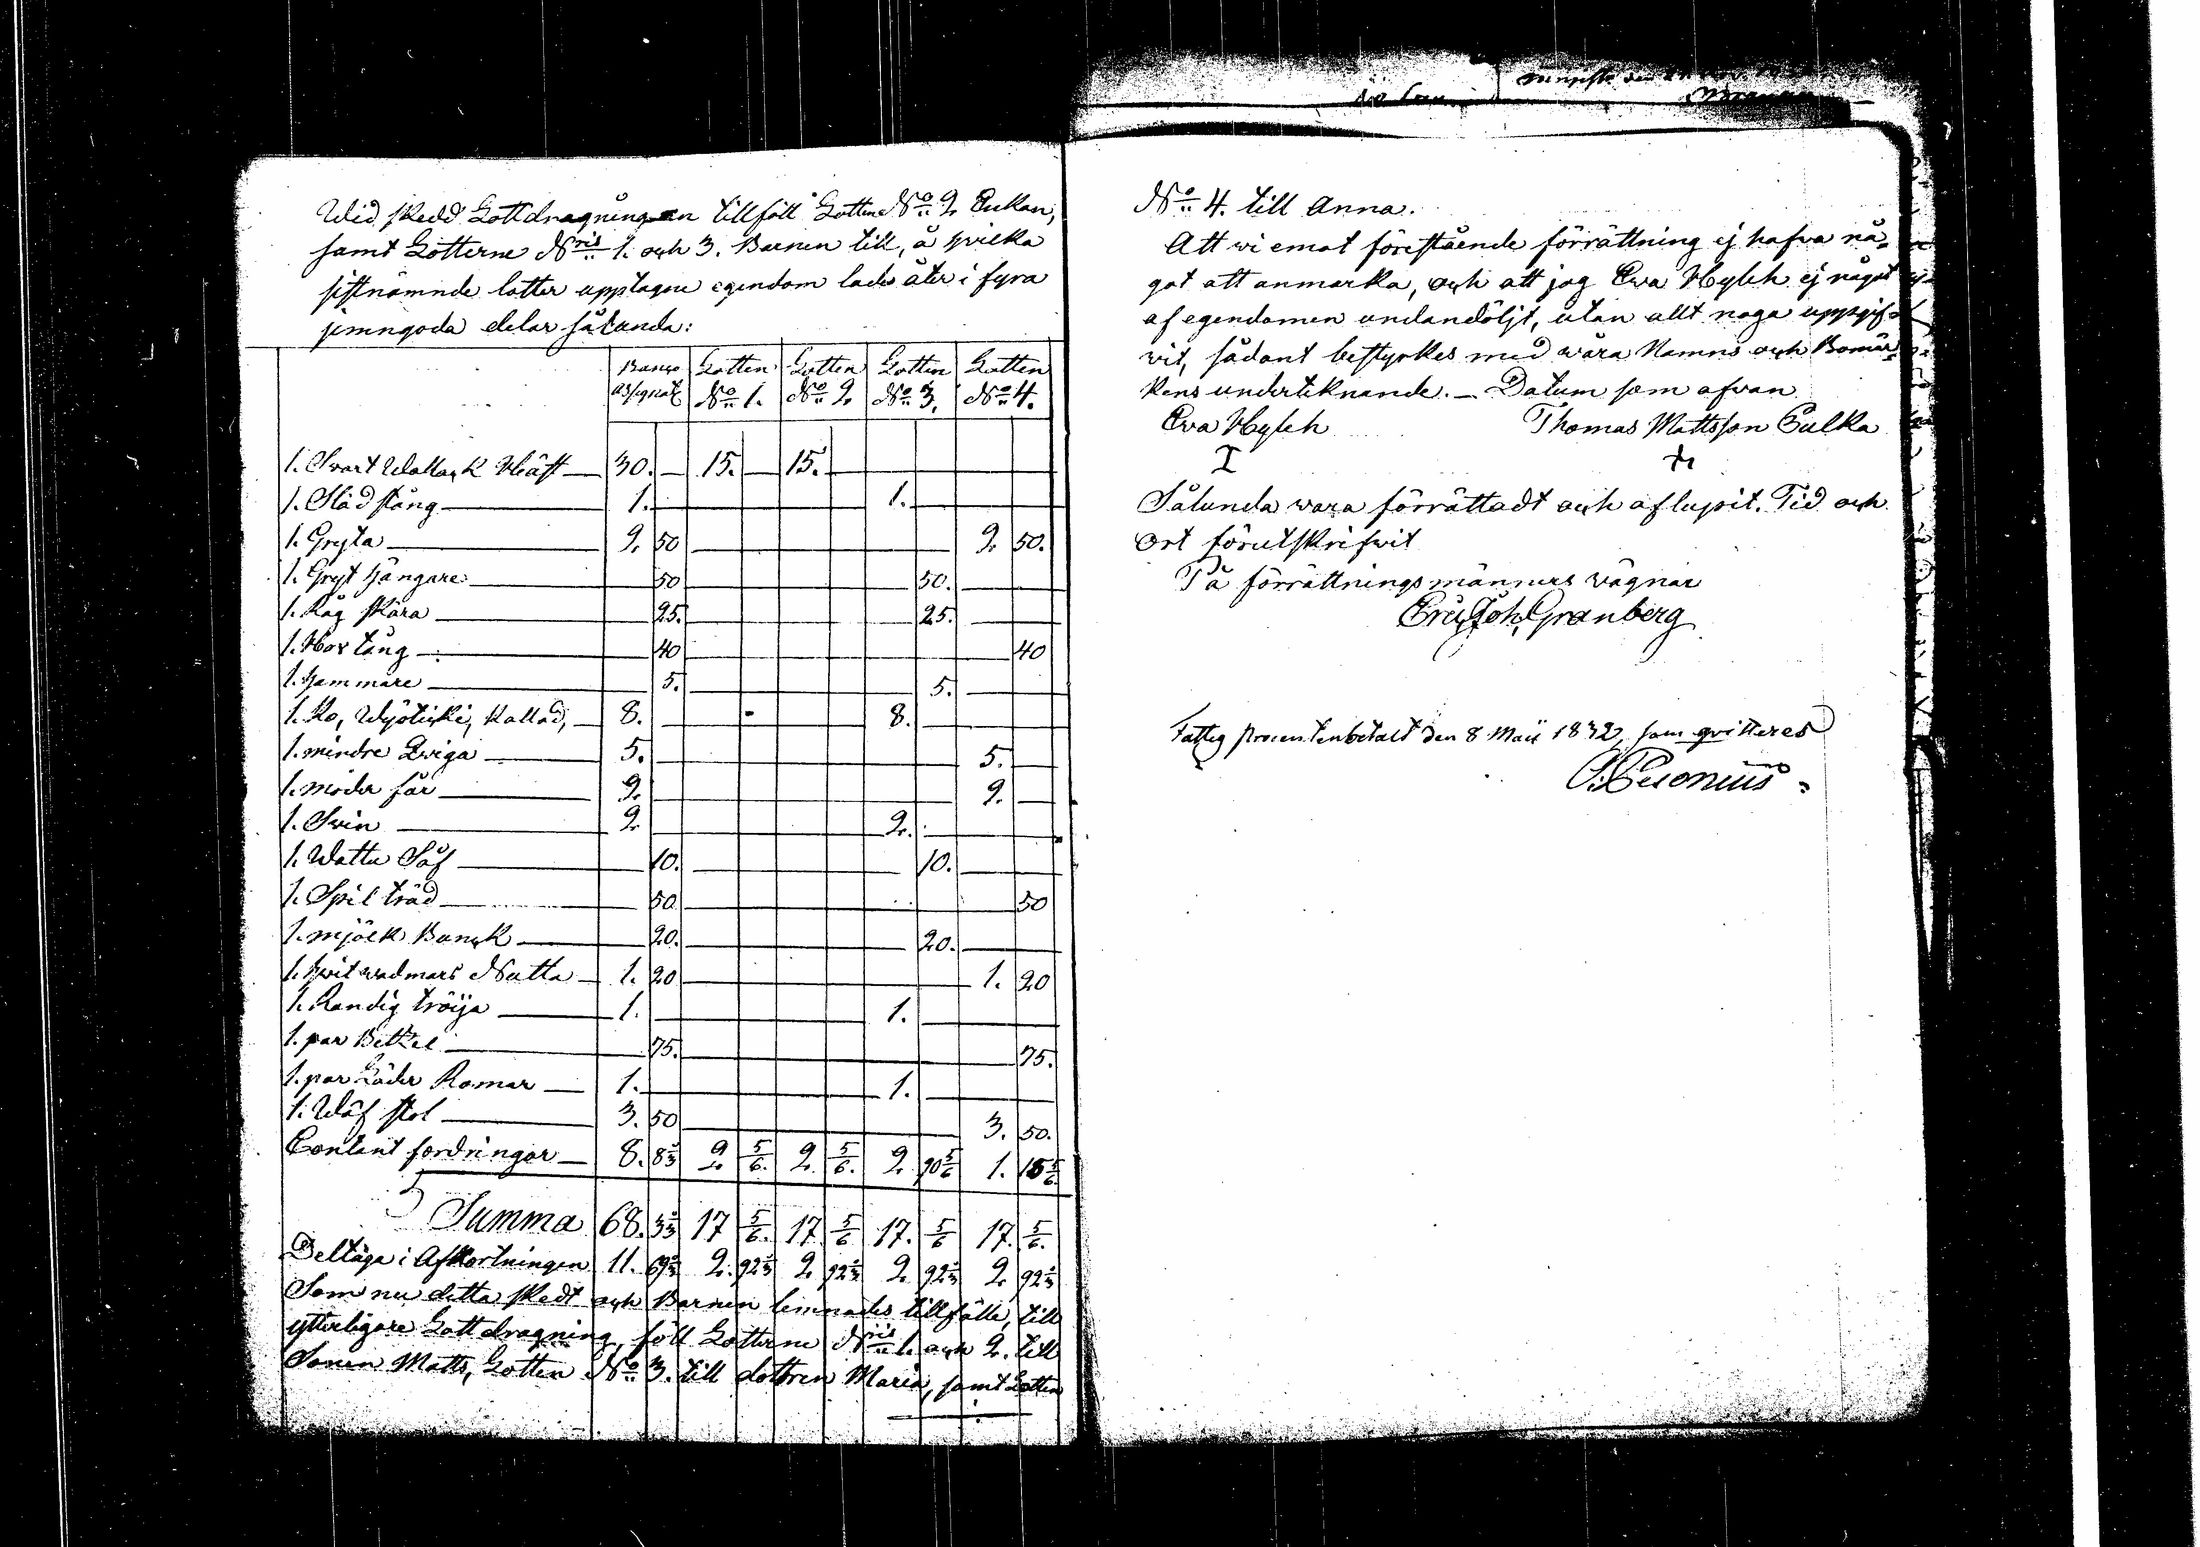 Wid skedd Lottdragningen tillföll Lotten No 2. Enkan,
samt Lotterne Nris 1. och 3. Barnen till, å hvilka
sistnämnde lotter upptagne egendom lades åter i fyra
jemngoda delar sålunda:
Banco Assignat. Lotten No 1. Lotten No 2. Lotten No 3. Lotten No 4.
1. Svart Wallack Häst 30. 15. 15.
1. Släd stång 1. 1.
1. Gryta 2. 50 2. 50.
1. Gryt hängare 50 50.
1. Råg skära 25. 25.
1. Hof tång 40 40
1. hammare 5. 5.
1. Ko, Wyöticki, Kallad, 8. 8.
1. mindre Qviga 5. 5.
1. moder får 2. 2.
1. Svin 2. 2.
1. Wattu Såf 10. 10.
1. Spil träd 50 50
1. mjölk Bunck 20. 20.
1. hvit wadmars Nutta 1. 20 1. 20
1. Randig tröija 1. 1.
1. par Betzel 75. 75.
1. par Läder Remar 1. 1.
1. Wäf stol 3. 50 3. 50.
Contant fordringar 8. 8⅓ 2. 5/6. 2. 5/6. 2. 90 5/6 1. 15 5/6
Summa 68. 3⅓ 17 5/6. 17. 5/6 17. 5/6 17. 5/6.
Deltaga i Afkortningen 11. 69⅓ 2. 92⅓ 2. 92⅓ 2. 92⅓ 2. 92⅓
Som nu detta skedt och Barnen lemnades tillfälle, till
ytterligare Lottdragning, föll Lotterne Nris 1. och 2. till
Sonen Matts, Lotten No 3. till dottren Maria, samt Lotten
No 4. till Anna.
Att wi emot förestående förrättning ej hafva nå=
got att anmärka, och att jag Ewa Hyleh ej något
af egendomen undandöljt, utan allt noga uppgif=
wit, sådant bestyrkes med wåra Namns och Bomär=
kens underteknande. — Datum som ofvan
Ewa Hyleh Thomas Mattsson Pulka
Sålunda wara förrättadt och aflupit. Tid och
Ort förutskrifwit
På förrättningsmännens wägnar
Eric Joh. Granberg
Fattig procenten betalt den 8 Maii 1832, som qvitteres